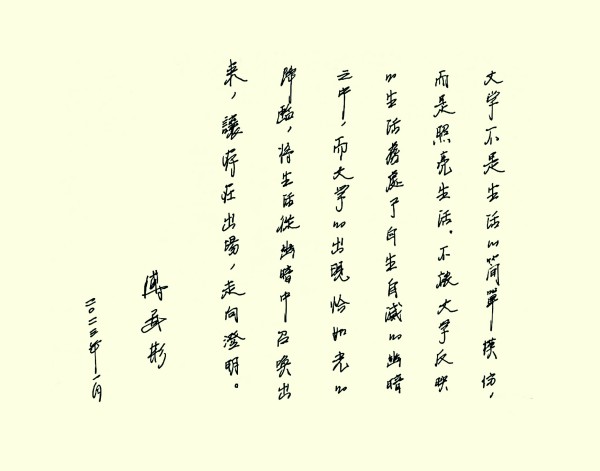 文学不是生活的简單模仿，
而是照亮生活。不被文学反映
的生活處于自生自滅的幽暗
之中，而文学的出現恰如光的
降臨，将生活從幽暗中召喚出
来，讓存在出場，走向澄明。
傅
二〇二三年一月